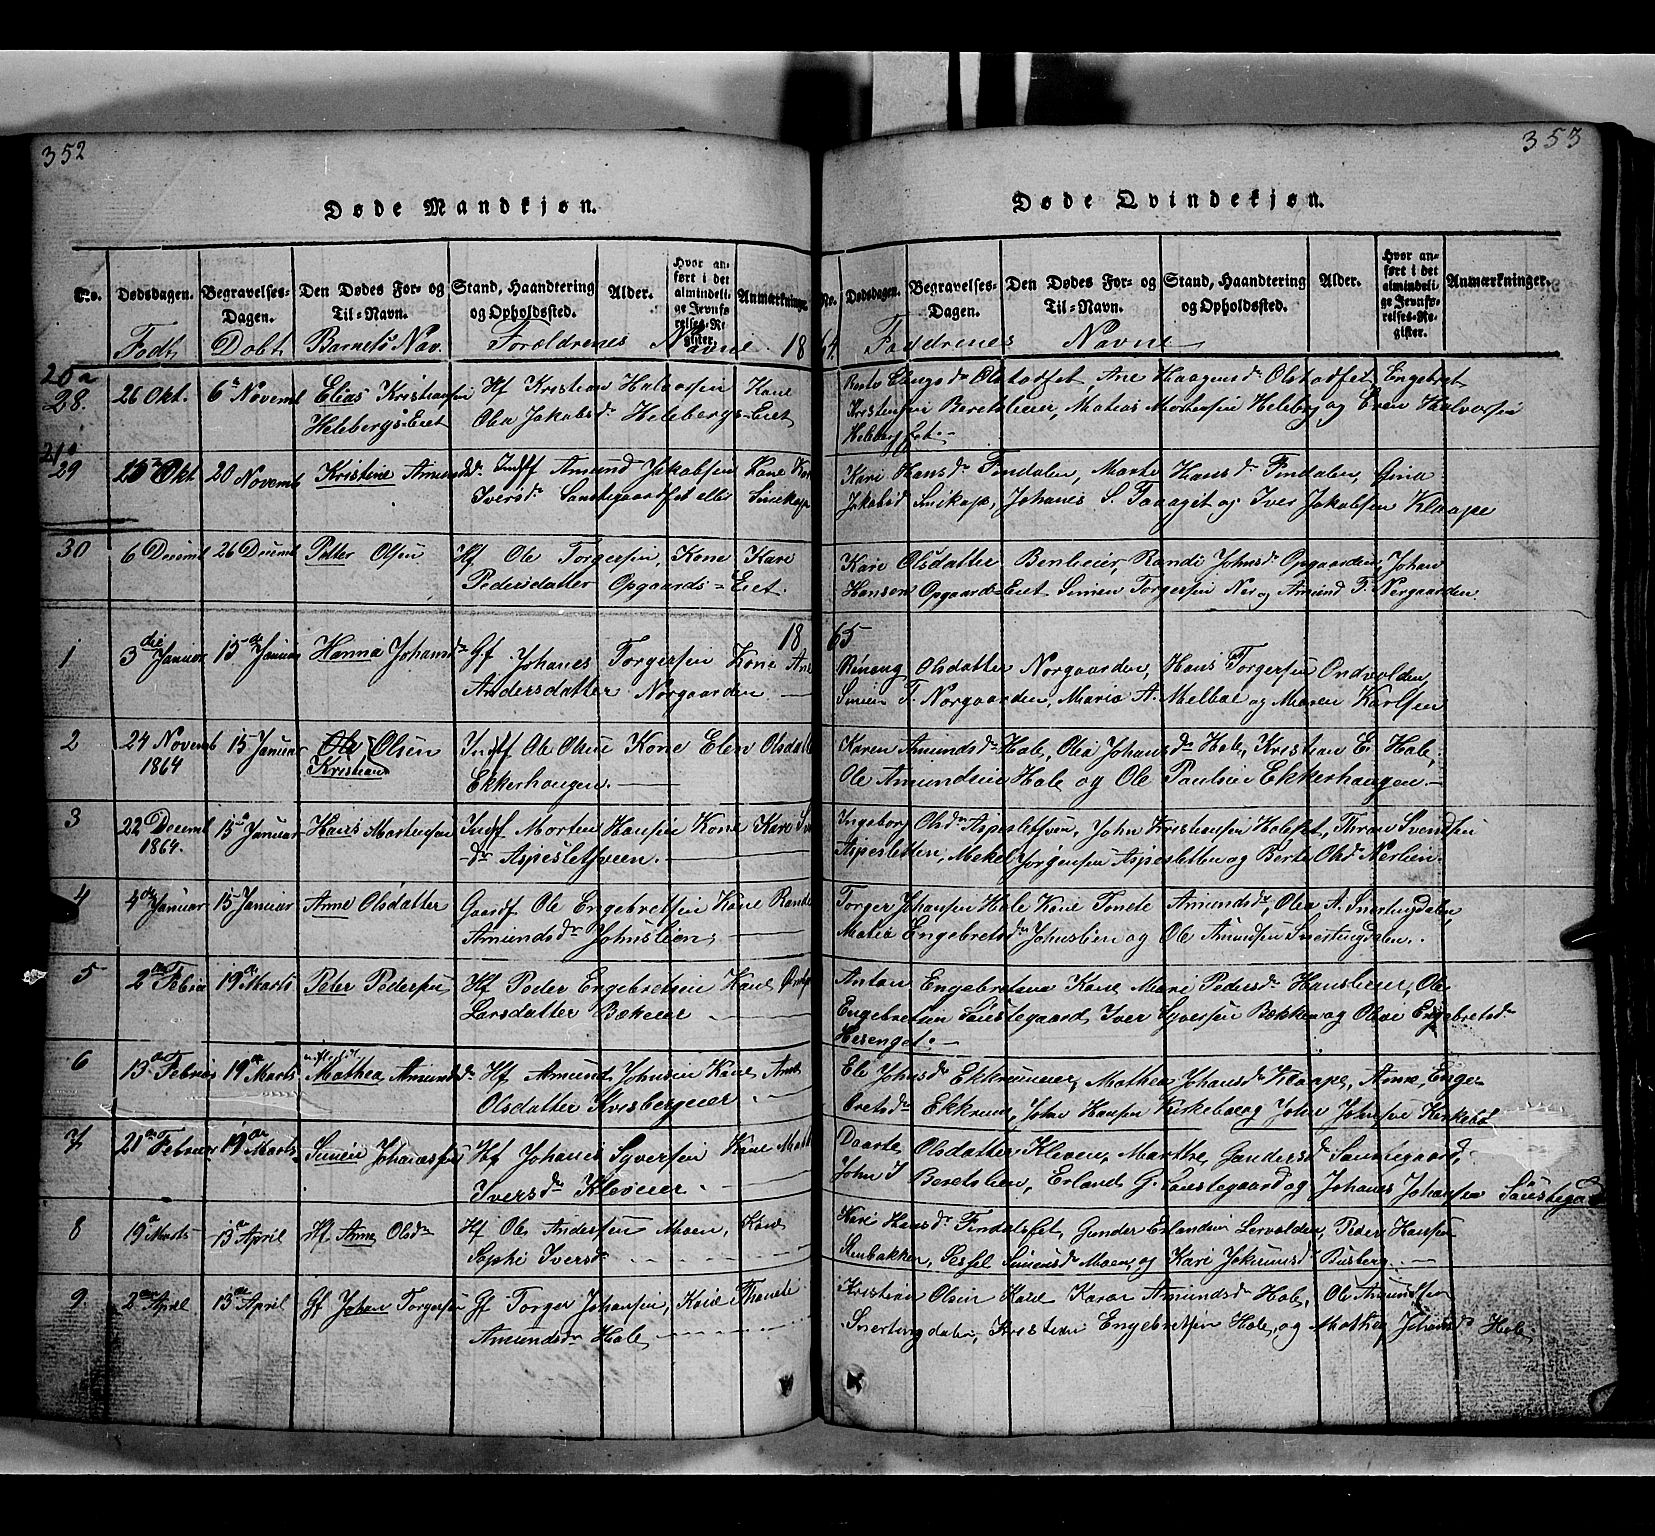 352
Døde Mandkjøn.
No. Dødsdagen. Begravelses-Dagen. Den Dødes For- og Til-Navn. Stand, Haandtering og Opholdssted. Alder. Hvor anført i det almindelige Jevnførelses-Register. Anmærkninger.
Født Døbt Barnets Nav. Forældrenes Navne. 18
28. 26 Okt. 6 Novemb Elias Kristiansen Hf Kristian Halvorsen Kone
Helebergs-Eiet Olea Jakobsd. Helebergs-Eiet
29 15 Okt 20 Novemb Kristine Amundsd. Indf Amund Jakobsen Kone Kar
Iversd.
30 6 Decemb 26 Decemb Petter Olsen Hf Ole Torgersen, Kone Kare
Pedersdatter Opgaards-Eiet.
18
1 3die Januar 15 Januar Hanna Johansd. Gf Johanes Torgersen Kone Ane
Andersdatter Norgaarden.
2 24 Novemb 15 Januar Ole Olsen Indf Ole Olsen Kone Elen Olsdatt
1864 Kristian Ekkerhaugen.
3 22 Decemb 15 Januar Hans Mortensen Indf. Morten Hansen Kone Kare
1864. dr Aspesletsveen.
4 4de Januar 15 Januar Anne Olsdatter Gaardf Ole Engebretsen Kone Rand
Amundsdr Johnslien,
5 2 Febru 19 Marts Peter Pedersen Hf Peder Engebretsen Kone
Larsdatter Bækeier
6 13 Februa 19 Marts Mathea Amundsd. Hf Amund Johnsen Kone
Olsdatter Kvisbergeier
7 21 Februar 19 Marts. Simen Johannesen Hf Johanes Syversen Kone
Iversdr Kleveier.
8 19 Marts 13 April Hf. Anne Olsdr Hf Ole Andersen Moen, Kone
Sophi Iversdr
9. 2 April 13 April Gf Johan Torgersen Gf Torger Johansen, Kone Thonete
Amundsdr Hole
353
Døde Qvindekjøn.
No. Dødsdagen. Begravelses-Dagen. Den Dødes For- og Til-Navn. Stand, Haandtering og Opholdssted. Alder. Hvor anført i det almindelige Jevnførelses-Register. Anmærkninger.
64. Faddrenes Navne
Olstadfet, Ane Haagensdr Olstadfet, Engebret
Kristensen Beretslien, Matias Mortensen Heleberg og Even Halvorsen
Kari Hansdr Findalen, Marte Hansdr Findalen, Gina
Jakobsd. Johanes S. og Iver Jakobsen Klaape
Kari Olsdatter Benlieier, Randi Johnsdr Opgaarden, Johan
Hansen Opgaards-Eiet Simen Torgersen Ner og Amund T. Nergaarden.
65
Olsdatter Norgaarden, Hans Torgersen Ondvolden,
Simen T. Norgaarden, Maria A. Melbae og Maren Karlsen
Karen Amundsdr Hole, Olea Johansdr Hole, Kristian E. Hole,
Ole Amundsen Hole og Ole Paulsen Ekkerhaugen.
Ingeborg Olsdr Aspesletsveen, John Kristiansen Thron Svendsen
Aspesletten, Mekel Jørgensen Aspesletten og Berte Olsd Nerlien.
Torger Johansen Hole Kone Tonete Amundsdr, Olea A. Snertingdalen,
Matea Engebretsdr Johnslien og Ole Amundsen Snertingdalen.
Anton Engebretsen Kone Mari Pedersd. Hanslieier, Ole
Engebretsen Saustegaard, Iver Syversen Bækken og Oleae Engebretsdr
Hesenget.
Eli Johnsdr Ekkruneier, Mathea Johansdr Klaape, Anne Enge-
bretsdr Ekkrun, John Hansen Kirkebø og John Johnsen Kirkebø
Olsdatter Kleven, Marthe Gundersdr Saustegaard,
John I Beretslien, Erland G. Saustegaard og Johanes Johansen Saustegaa
Kari Hansdr Findalsfet, Gunder Erlandsen Lervolden, Peder Hansen
Stenbakken, Sessel Simensdr Moen, og Kari Jokumsdr Busberg.
Kristian Olsen Kone Karen Amundsdr Hole, Ole Amundsen
Snertingdalen, Kristian Engebretsen Hole, og Mathea Johansd Hole